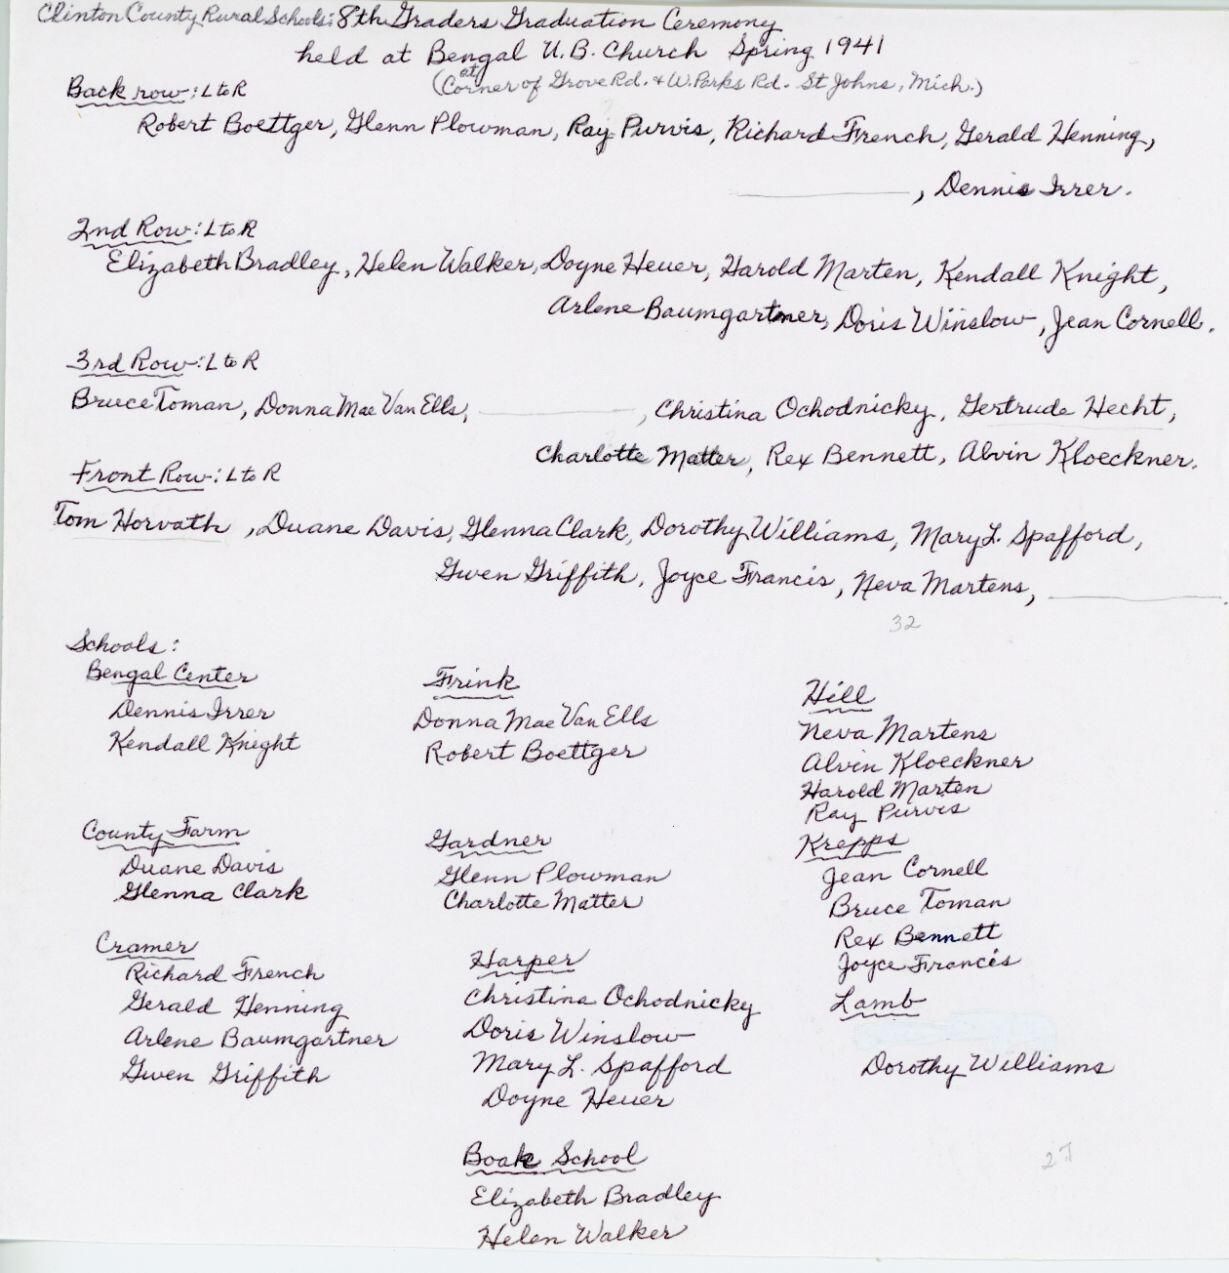 Clinton County Rural Schools: 8th Graders Graduation Ceremony
held at Bengal U.B. Church Spring 1941
(at Corner of Grove Rd. + W. Parks Rd. St Johns, Mich.)
Back row: L to R
Robert Boettger, Glenn Plowman, Ray Purvis, Richard French, Gerald Henning,
, Dennis Irrer.
2nd Row: L to R
Elizabeth Bradley, Helen Walker, Doyne Heuer, Harold Marten, Kendall Knight,
Arlene Baumgartner, Doris Winslow, Jean Cornell.
3rd Row: L to R
Bruce Toman, Donna Mae Van Ells, , Christina Ochodnicky, Gertrude Hecht,
Charlotte Matter, Rex Bennett, Alvin Kloeckner.
Front Row: L to R
Tom Horvath, Duane Davis, Glenna Clark, Dorothy Williams, Mary L. Spafford,
Gwen Griffith, Joyce Francis, Neva Martens,
32
Schools:
Bengal Center
Dennis Irrer
Kendall Knight
County Farm
Duane Davis
Glenna Clark
Cramer
Richard French
Gerald Henning
Arlene Baumgartner
Gwen Griffith
Frink
Donna Mae Van Ells
Robert Boettger
Gardner
Glenn Plowman
Charlotte Matter
Harper
Christina Ochodnicky
Doris Winslow
Mary L. Spafford
Doyne Heuer
Boak School
Elizabeth Bradley
Helen Walker
Hill
Neva Martens
Alvin Kloeckner
Harold Marten
Ray Purvis
Krepps
Jean Cornell
Bruce Toman
Rex Bennett
Joyce Francis
Lamb
Dorothy Williams